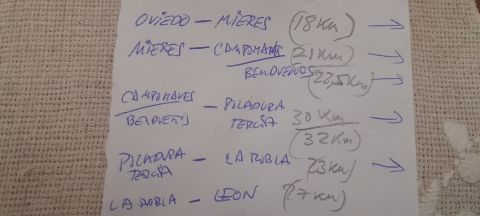 OVIEDO — MIERES (18 Km) →
MIERES — CAMPOMANES (21 Km) →
BENDUEÑOS (22,5 Km) →
CAMPOMANES — POLADURA 30 Km →
BENDUEÑOS TERCIA (32 Km)
POLADURA — LA ROBLA (23 Km) →
TERCIA
LA ROBLA — LEON (27 Km)